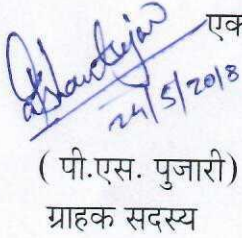 एक
24/5/2018
( पी.एस. पुजारी)
ग्राहक सदस्य